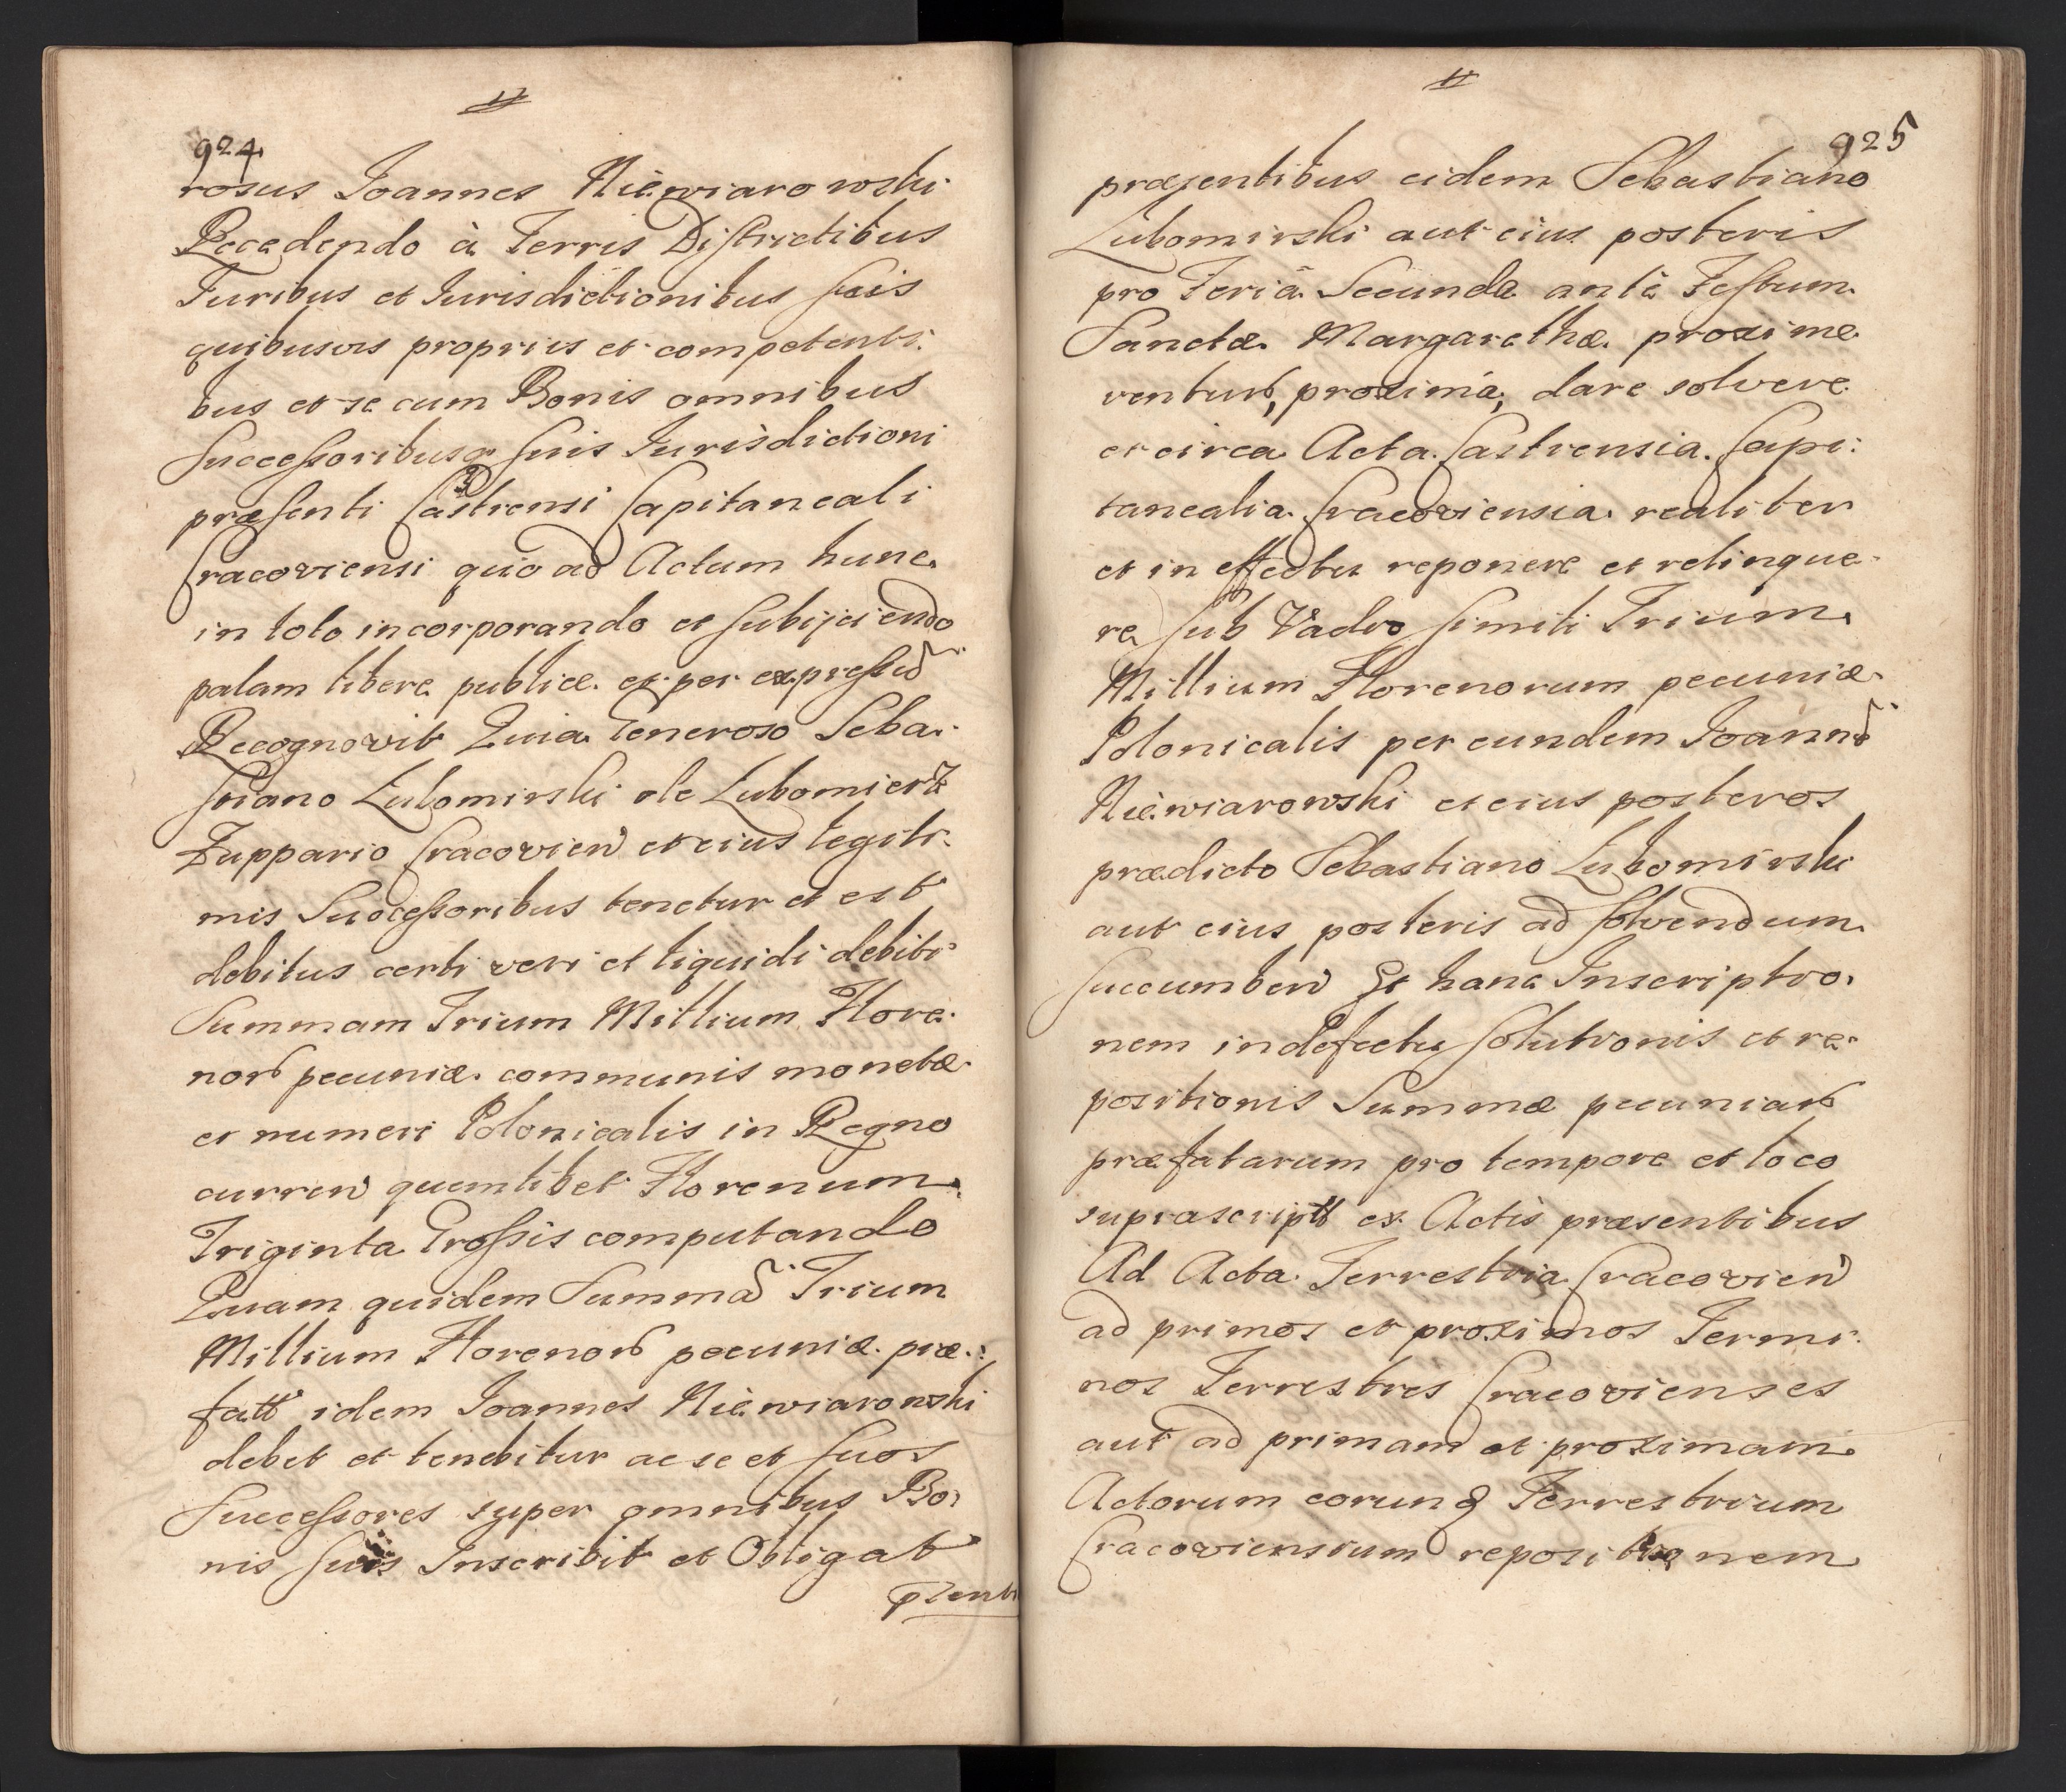 924
rosus Joannes Niewiarowski
Recedendo à Terris Districtibus
Juribus et Jurisdictionibus suis
quibusvis propriis et competenti:
bus et se cum Bonis omnibus
Successoribusq suis Jurisdictioni
præsenti Castrensi Capitaneali
Cracoviensi quo ad Actum hunc
in toto incorporando et subijciendo
palam libere publice et per expressũ
Recognovit Quia Generoso Seba:
stiano Lubomirski de Lubomierz
Zuppario Cracovien et eius legiti:
mis Successoribus tenetur et est
debitus certi veri et liquidi debiti
Summam Trium Millium Flore:
nor pecuniæ communis monetæ
et numeri Polonicalis in Regno
curren quemlibet Florenum
Triginta Grossis computando
Quam quidem Summã Trium
Millium Florenor pecuniæ præ:
fatt idem Joannes Niewiarowski
debet et tenebitur ac se et suos
Successores super omnibus Bo:
nis suis Inscribit et Obligat
pzenti
925
præsentibus eidem Sebastiano
Lubomirski aut eius posteris
pro Feriâ Secunda ante Festum
Sanctæ Margarethæ proxime
ventur, proxima, dare solvere
et circa Acta Castrensia Capi:
tanealia Cracoviensia realiter
et in effectu reponere et relinque:
re sub Vadio simili Trium
Millium Florenorum pecuniæ
Polonicalis per eundem Joannẽ
Niewiarowski et eius posteros
prædicto Sebastiano Lubomirski
aut eius posteris ad solvendum
succumben Et hanc Inscriptio:
nem in defectu solutionis et re:
positionis Summæ pecuniar
præfatarum pro tempore et loco
suprascriptt ex Actis præsentibus
Ad Acta Terrestria Cracovien
ad primos et proximos Termi:
nos Terrestres Cracovienses
aut ad primam et proximam
Actorum eorund Terrestrium
Cracoviensium repositionem